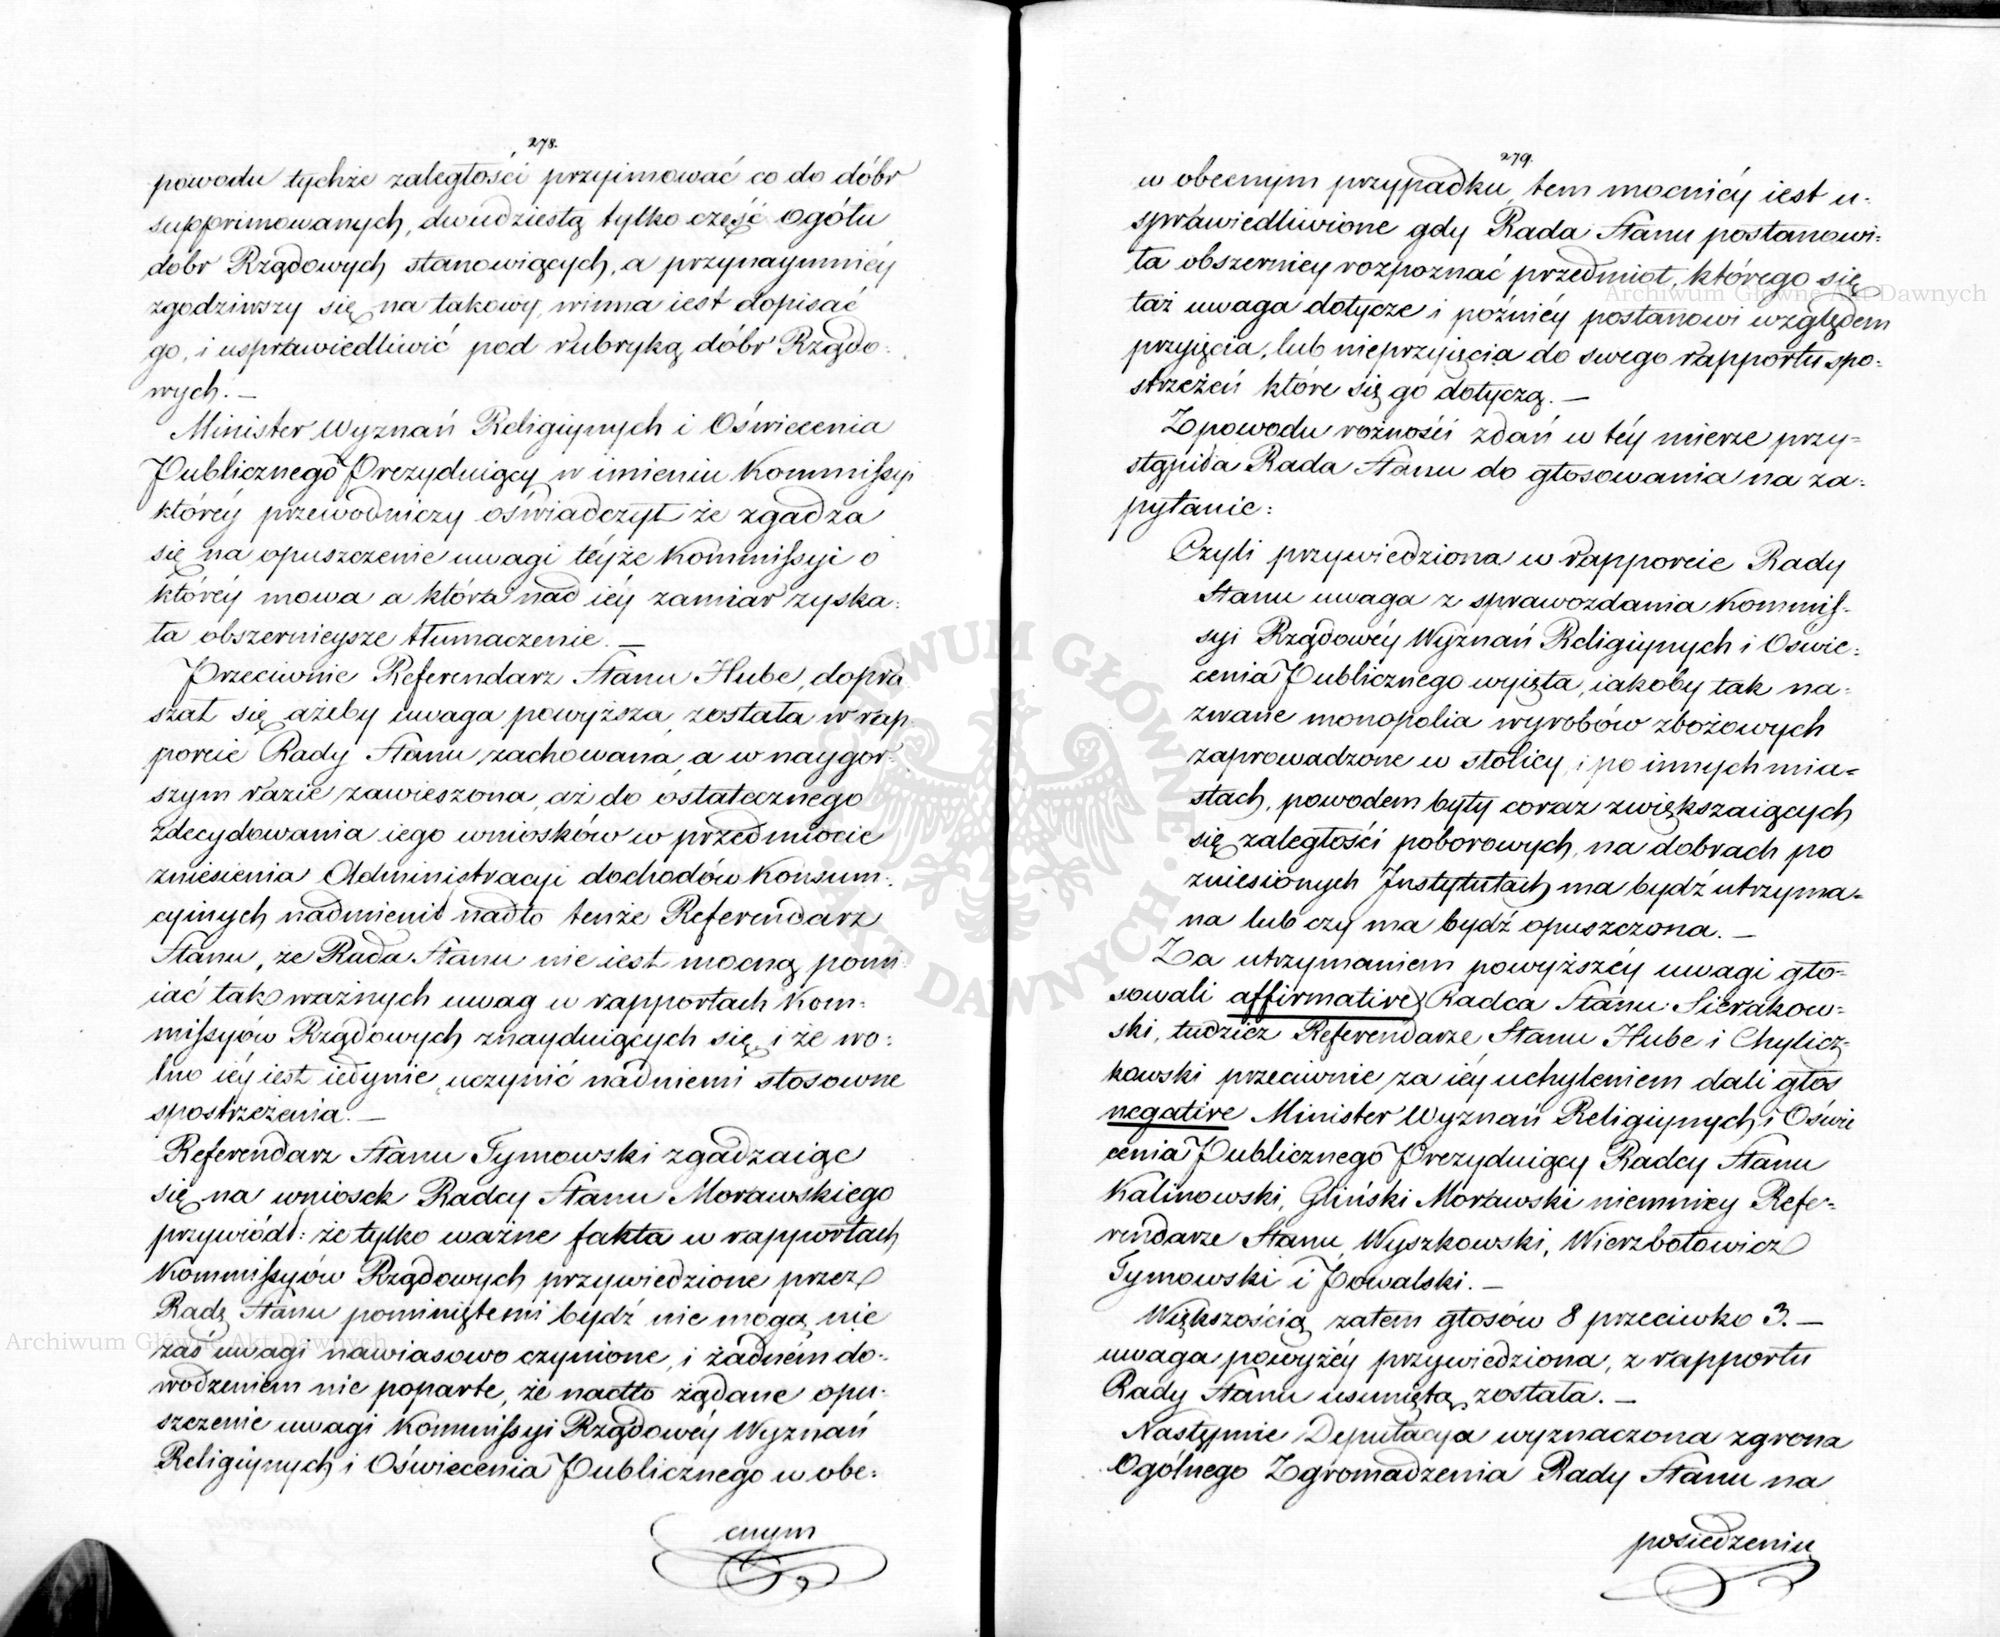 278.
powodu tychże zaległości przyimować co do dóbr
supprimowanych, dwudziestą tylko część ogółu
dóbr Rządowych stanowiących, a przynaymniéy
zgodziwszy się na takowy, winna iest dopisać
go, i usprawiedliwić pod rubryką dóbr Rządo-
wych. —
Minister Wyznań Religiynych i Oświecenia
Publicznego Prezyduiący w imieniu Kommissyi
któréy przewodniczy oświadczył że zgadza
się na opuszczenie uwagi téyże Kommissyi o
któréy mowa a która nad iéy zamiar zyska-
ła obszernieysze tłumaczenie. —
Przeciwnie Referendarz Stanu Hube, dopra
szał się ażeby uwaga powyższa została w rap-
porcie Rady Stanu zachowana, a w naygor-
szym razie zawieszona aż do ostatecznego
zdecydowania iego wniosków w przedmiocie
zniesienia Administracyi dochodów Konsum-
cyinych nadmienił nadto tenże Referendarz
Stanu, że Rada Stanu nie iest mocną pomi
iać tak ważnych uwag w rapportach Kom-
missyów Rządowych znayduiących się, i że wo-
lno iéy iest iedynie uczynić nad niemi stosowne
spostrzeżenia. —
Referendarz Stanu Tymowski zgadzaiąc
się na wniosek Radcy Stanu Morawskiego
przywiódł: że tylko ważne fakta w rapportach
Kommissyów Rządowych przywiedzione przez
Radę Stanu pominiętemi bydź nie mogą, nie
zaś uwagi nawiasowo czynione, i żadném do-
wodzeniem nie poparte, że nadto żądane opu-
szczenie uwagi Kommissyi Rządowéy Wyznań
Religiynych i Oświecenia Publicznego w obe-
cnym
279.
w obecnym przypadku, tem mocniéy iest u-
sprawiedliwione gdy Rada Stanu postanowi-
ła obszerniey rozpoznać przedmiot, którego się
taż uwaga dotycze i późniéy postanowi względem
przyięcia, lub nieprzyięcia do swego rapportu spo-
strzeżeń które się go dotyczą. —
Z powodu rożności zdań w téy mierze przy-
stąpiła Rada Stanu do głosowania na za-
pytanie:
Czyli przywiedziona w rapporcie Rady
Stanu uwaga z sprawozdania Kommis-
syi Rządowéy Wyznań Religiynych i Oswie-
cenia Publicznego wyięta, iakoby tak na-
zwane monopolia wyrobów zbożowych
zaprowadzone w stolicy, i po innych mia-
stach, powodem były coraz zwiększaiących
się zaległości poborowych, na dobrach po
zniesionych Instytutach ma bydź utrzyma-
na lub czy ma bydź opuszczona. —
Za utrzymaniem powyższéy uwagi gło-
sowali affirmative, Radca Stanu Sierakow-
ski, tudzież Referendarze Stanu Hube i Chylicz-
kowski przeciwnie za iéy uchyleniem dali głos
negative Minister Wyznań Religiynych i Oświe
cenia Publicznego Prezyduiący Radcy Stanu
Kalinowski, Gliński Morawski niemniey Refe-
rendarze Stanu Wyszkowski, Wierzbołowicz
Tymowski i Kowalski. —
Większością zatem głosów 8 przeciwko 3. —
uwaga powyżéy przywiedziona, z rapportu
Rady Stanu usuniętą została. —
Następnie Deputacya wyznaczona z grona
Ogólnego Zgromadzenia Rady Stanu na
posiedzeniu
Archiwum Główne Akt Dawnych
Archiwum Główne Akt Dawnych
ARCHIWUM GŁÓWNE AKT DAWNYCH